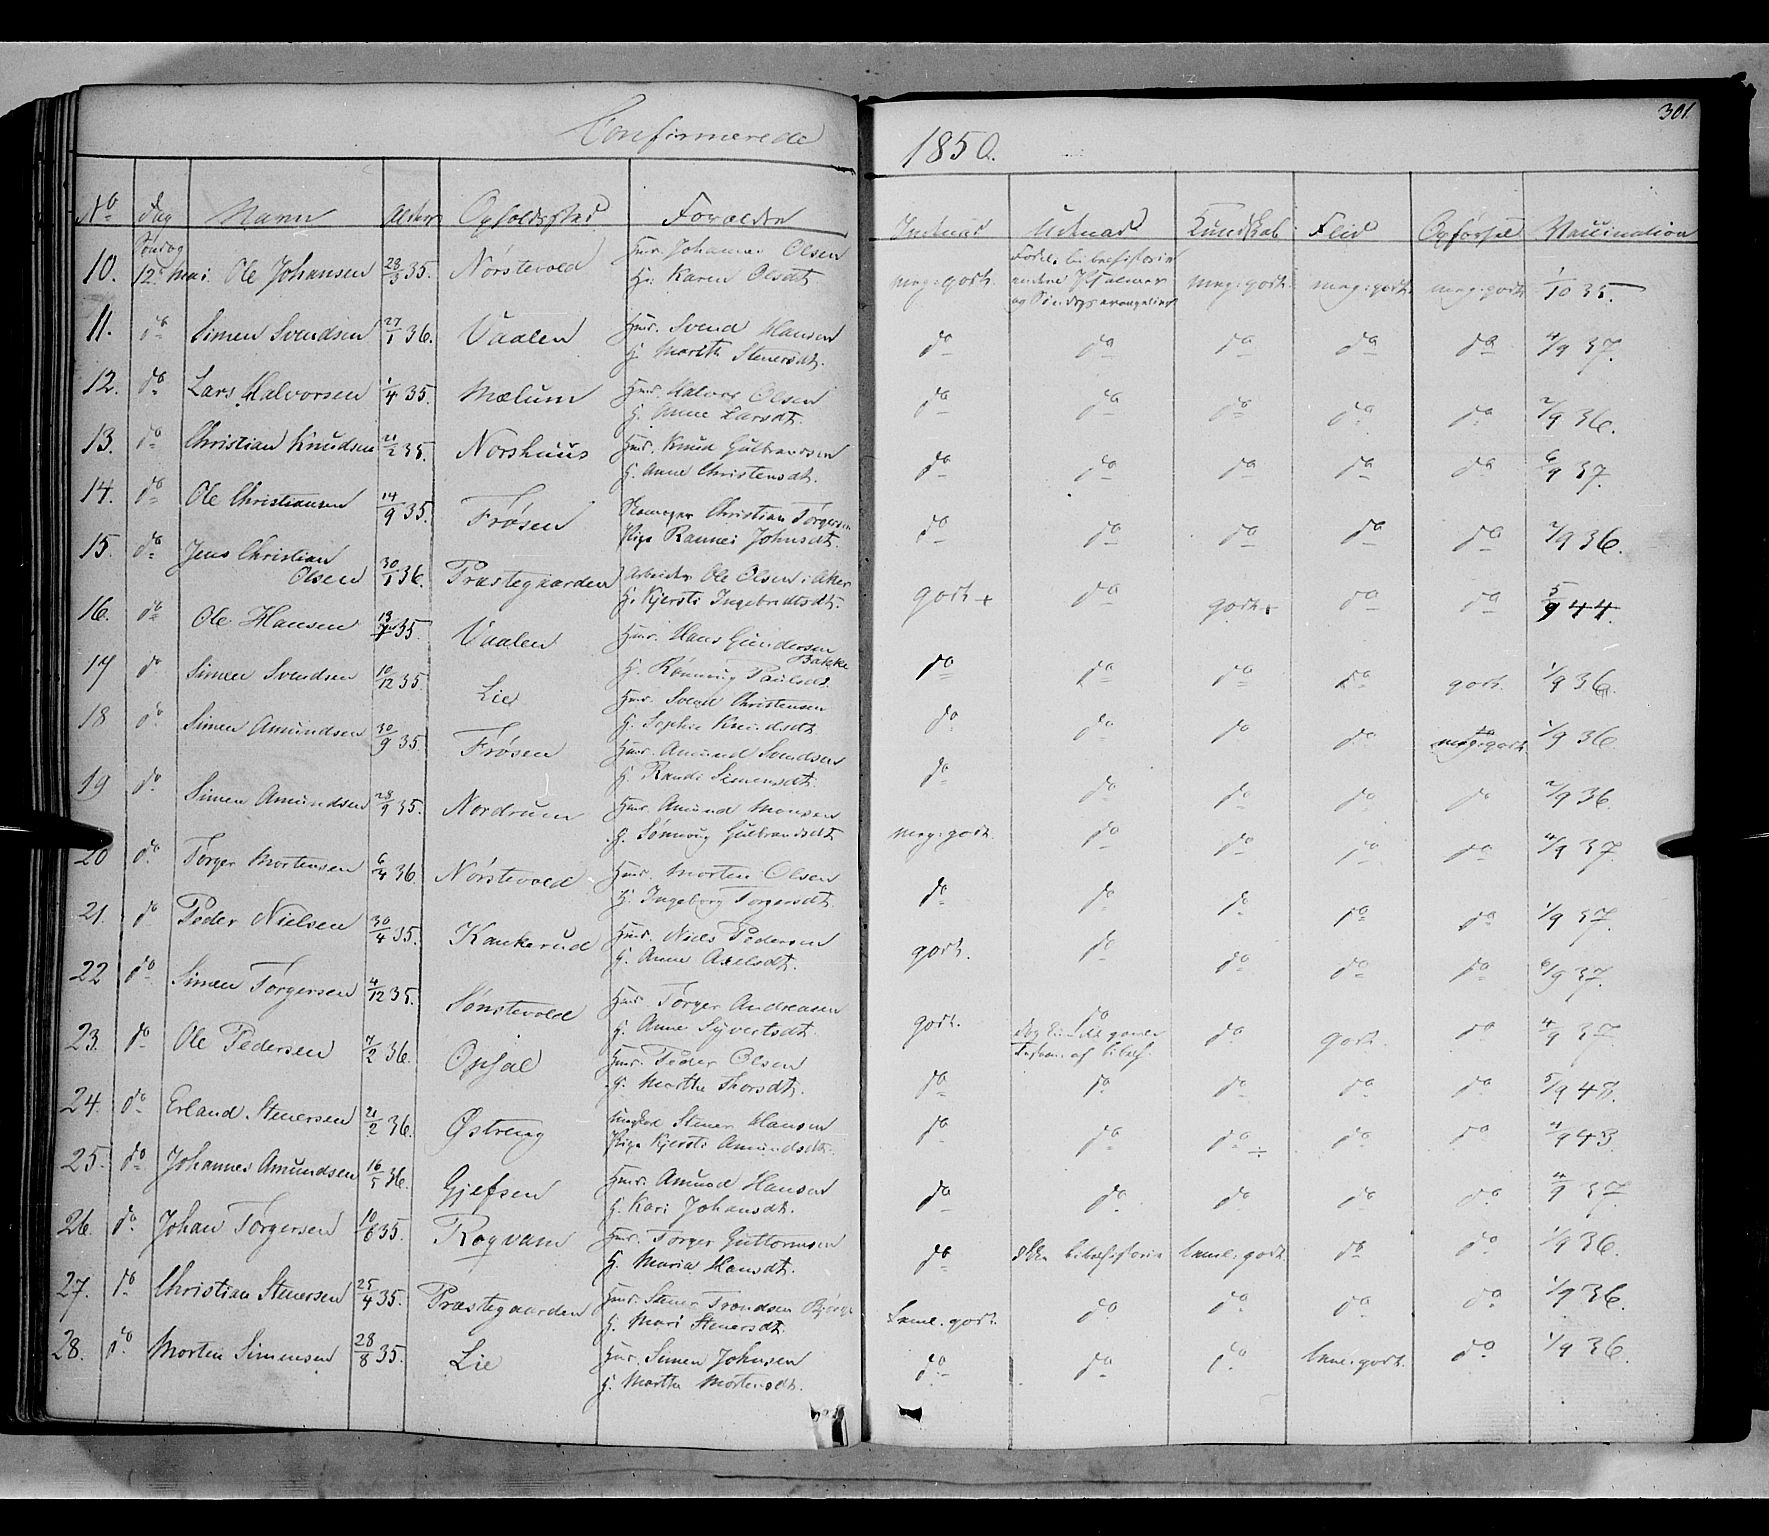 Confirmerede 1850. 301.
No Dag Navn Alder Opholdssted Forældre Indenad Udenad Kundskab Flid Opførsel Vaccination
10. Søndag 12te Mai Ole Johansen 23/3 35. Nórstevold Huusm. Johannes Olsen meg: godt. meg: godt. meg: godt. meg: godt. 1/10 35.
H: Karen Olsdt.
11. do Simen Svendsen 27/1 36. Vaalen Hmd. Svend Hansen do do do do do 4/9 37.
H. Marith Steversdt.
12. do Lars Halvorsen 1/4 35. Mælum Hmd. Halvor Olsen do do do do do 2/9 36.
H. Anne Larsdt.
13. do Christian Knudsen 21/2 35. Norshuus Hmd. Knud Gulbrandsen do do do do do 6/9 37.
H. Anne Christensdt.
14. do Ole Christiansen 14/9 35. Frøsen Christian Torgersen do do do do do 2/9 36.
Pige Rannei Johnsdt.
15. do Jens Christian Olsen 30/1 36. Præstegaarden Arbeider Ole Olsen i Aker godt + do godt + do do 5/9 44.
H. Kjersti Ingebretsdt.
16. do Ole Hansen 35. Vaalen Hmd. Hans Gundersen Bakke do do do do godt. 1/9 36.
H. Rønnoug Paulsdt.
17 do Simen Svendsen 10/12 35. Lie Hmd. Svend Christensen do do do do meg: godt 1/9 36.
H. Sophie Knudsdt.
18 do Simen Amundsen 30/9 35. Frøsen Hmd. Amund Svendsen do do do do do 2/9 36.
H. Randi Simensdt.
19 do Simen Amundsen 28/9 35. Nordrum Hmd. Amund Monsen meg: godt. do do do do 4/9 37
H. Sønnoug Gulbrandsdt.
20 do Torger Mortensen 6/4 36. Nórstevold Hmd. Morten Olsen do do do do do 1/9 37.
H. Ingeborg Torgersdt.
21. do Peder Nielsen 30/4 35. Kankerud Hmd. Niels Pedersen godt. do do do do 6/9 37.
H. Anne Axelsdt.
22 do Simen Torgersen 4/12 35. Sónstevold Hmd. Torger Andreasen godt. do do godt. do 4/9 37.
H. Anne Syvertsdt.
23. do Ole Pedersen 7/2 36. Opsal Hmd. Peder Olsen do do do do do 5/9 48.
H. Marthe Thorsdt.
24. do Erland Steversen 21/2 36. Østreng Ungkarl Stener Hansen do do do ÷ do do 4/9 43
Pige Kjersti Amundsdt.
25. do Johannes Amundsen 16/5 36. Gjefsen Hmd. Amund Hansen do do do do do 4/9 37.
H. Kari Johansdt.
26. do Johan Torgersen 10/6 35. Rognam Hmd. Torger Guttormsen do bibelhistorie temel: godt do do 1/9 36.
H. Maria Hansdt.
27. do Christian Steversen 25/4 35. Præstegaarden Hmd. Stener Trondsen temel: godt. do do do do 1/9 36.
H. Mari Steversdt.
28. do Morten Simensen 28/8 35. Lie Hmd. Simen Johnsen do do do temel: godt. do 1/9 36.
H. Marthe Mortensdt.